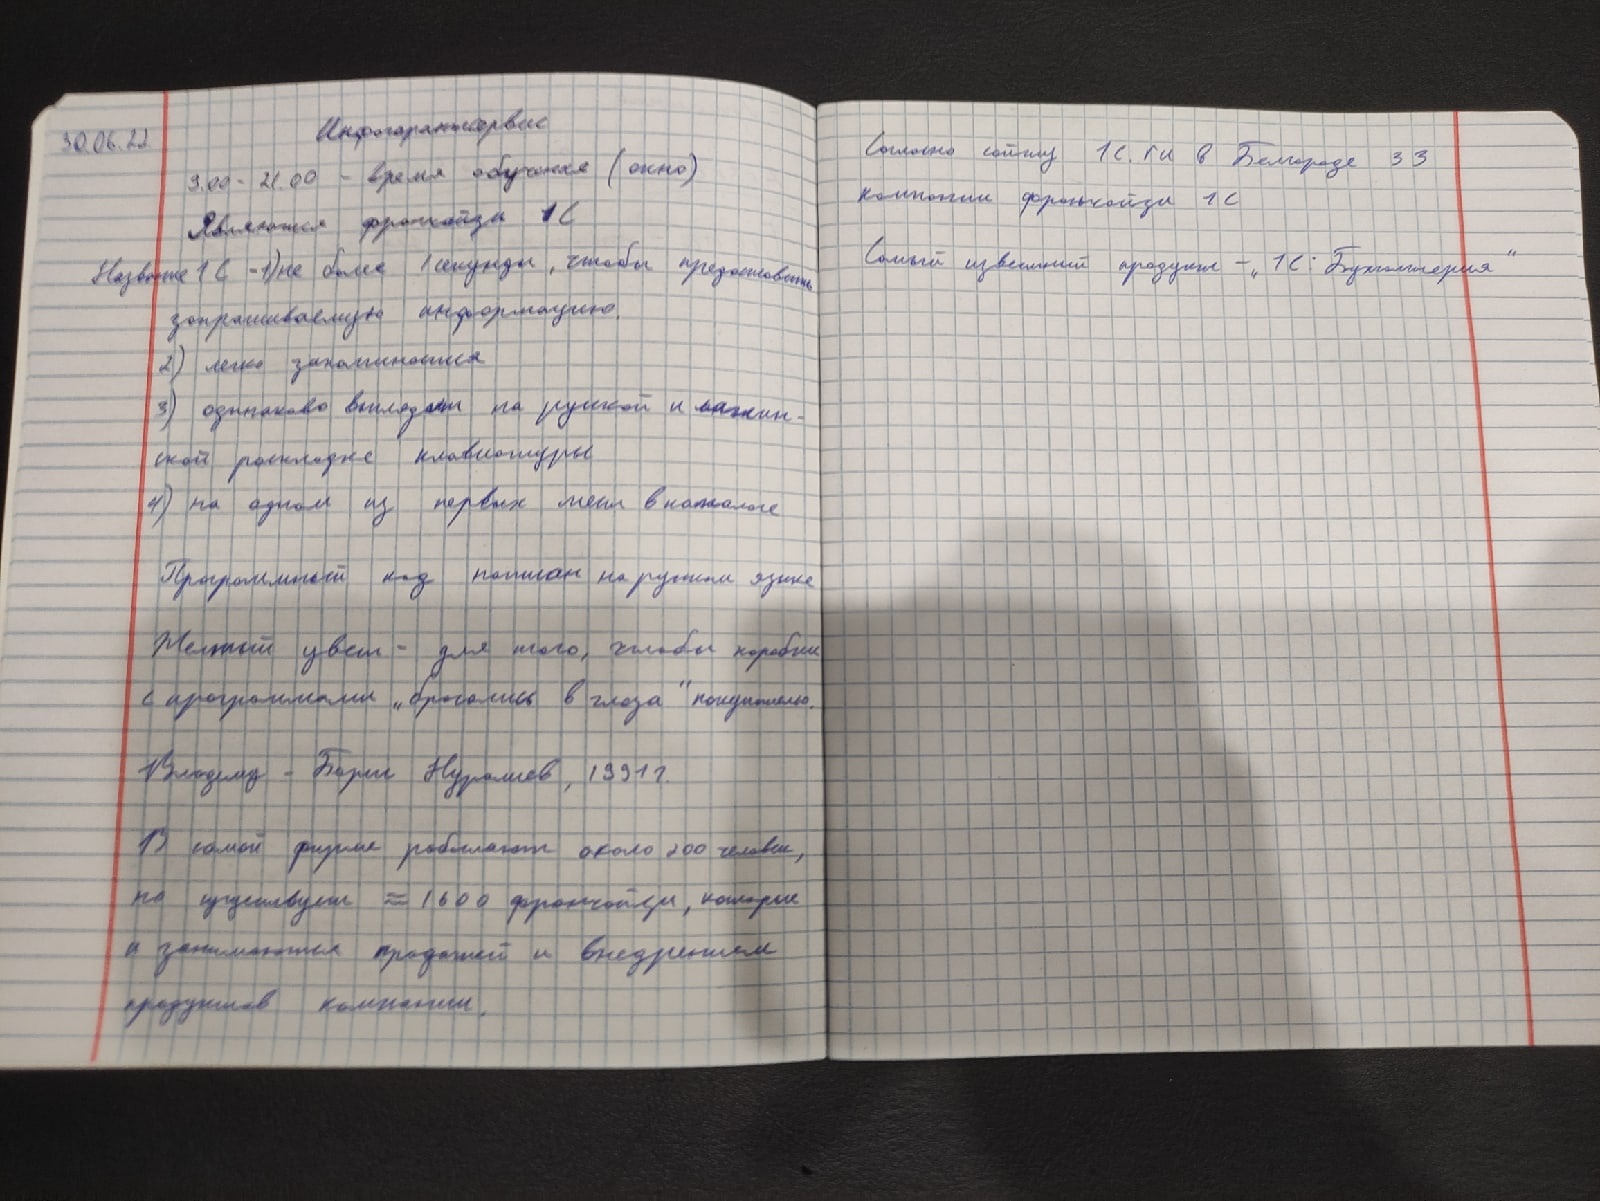 30.06.22
Инфогарантсервис
9.00 - 21.00 - время обучения (окно)
Являются франчайзи 1С
Название 1С - 1) не более 1 секунды, чтобы предоставить
запрашиваемую информацию.
2) легко запоминается
3) одинаково выглядит на русской и латин-
ской раскладке клавиатуры
4) на одном из первых мест в каталоге
Программный код написан на русском языке
Желтый цвет - для того, чтобы коробки
с программами „бросались в глаза" покупателю.
Владелец - Борис Нуралиев, 1991 г.
В самой фирме работают около 200 человек,
но существует ≈ 1600 франчайзи, которые
и занимаются продажей и внедрением
продуктов компании.
Согласно сайту 1С.ru в Белгороде 33
компании франчайзи 1С
Самый известный продукт - „1С: Бухгалтерия"